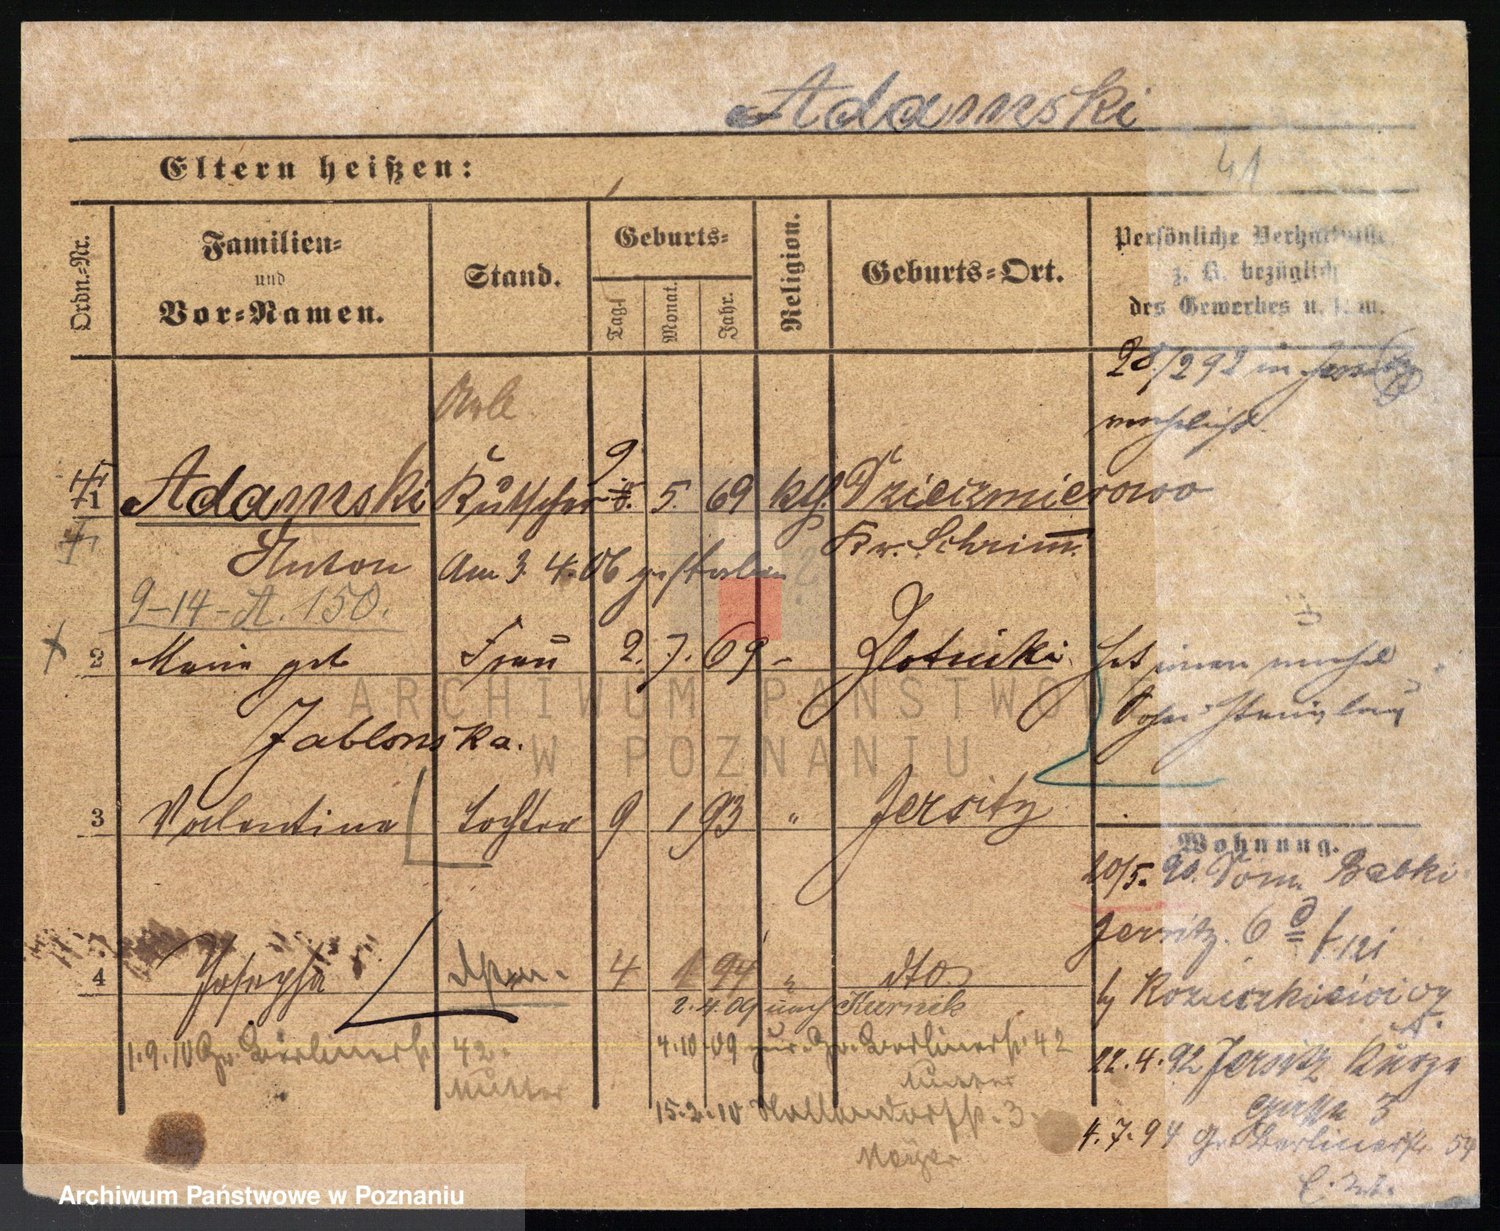 Adamski
41
Eltern heißen:
Ordn.-Nr.
Familien-
und
Vor-Namen.
Stand.
Geburts-
Tag.
Monat.
Jahr.
Religion.
Geburts-Ort.
Persönliche Verhältnisse
z. B. bezüglich
des Gewerbes u. s. w.
28/2 92 in Jersitz
verehelicht.
Arb.
1 Adamski Kutscher 9 5. 69 kth. Dzieczmierowo
Anton Am 3. 4. 06 gestorben Kr. Schrimm.
9-14-A. 150.
2 Marie geb Frau 2. 7. 69 - Zlotniki
Jablonska.
3 Valentine Tochter 9 1 93 " Jersitz
Wohnung.
20/5. 90. Dom. Babki
Jersitz. 6
4 Josepha 4 1 94 " dto.
2.4.09 nach Kurnik
1.9.10 Gr. Berlinerst. 42.
Mutter
4.10.09 zur. Gr. Berlinerst. 42
Mutter
22.4.92 Jersitz Kurze
gasse 3
15.2.10 Hallendorfst. 3.
4.7.94 Gr. Berlinerst. 54
ARCHIWUM PAŃSTWOWE
W POZNANIU
Archiwum Państwowe w Poznaniu